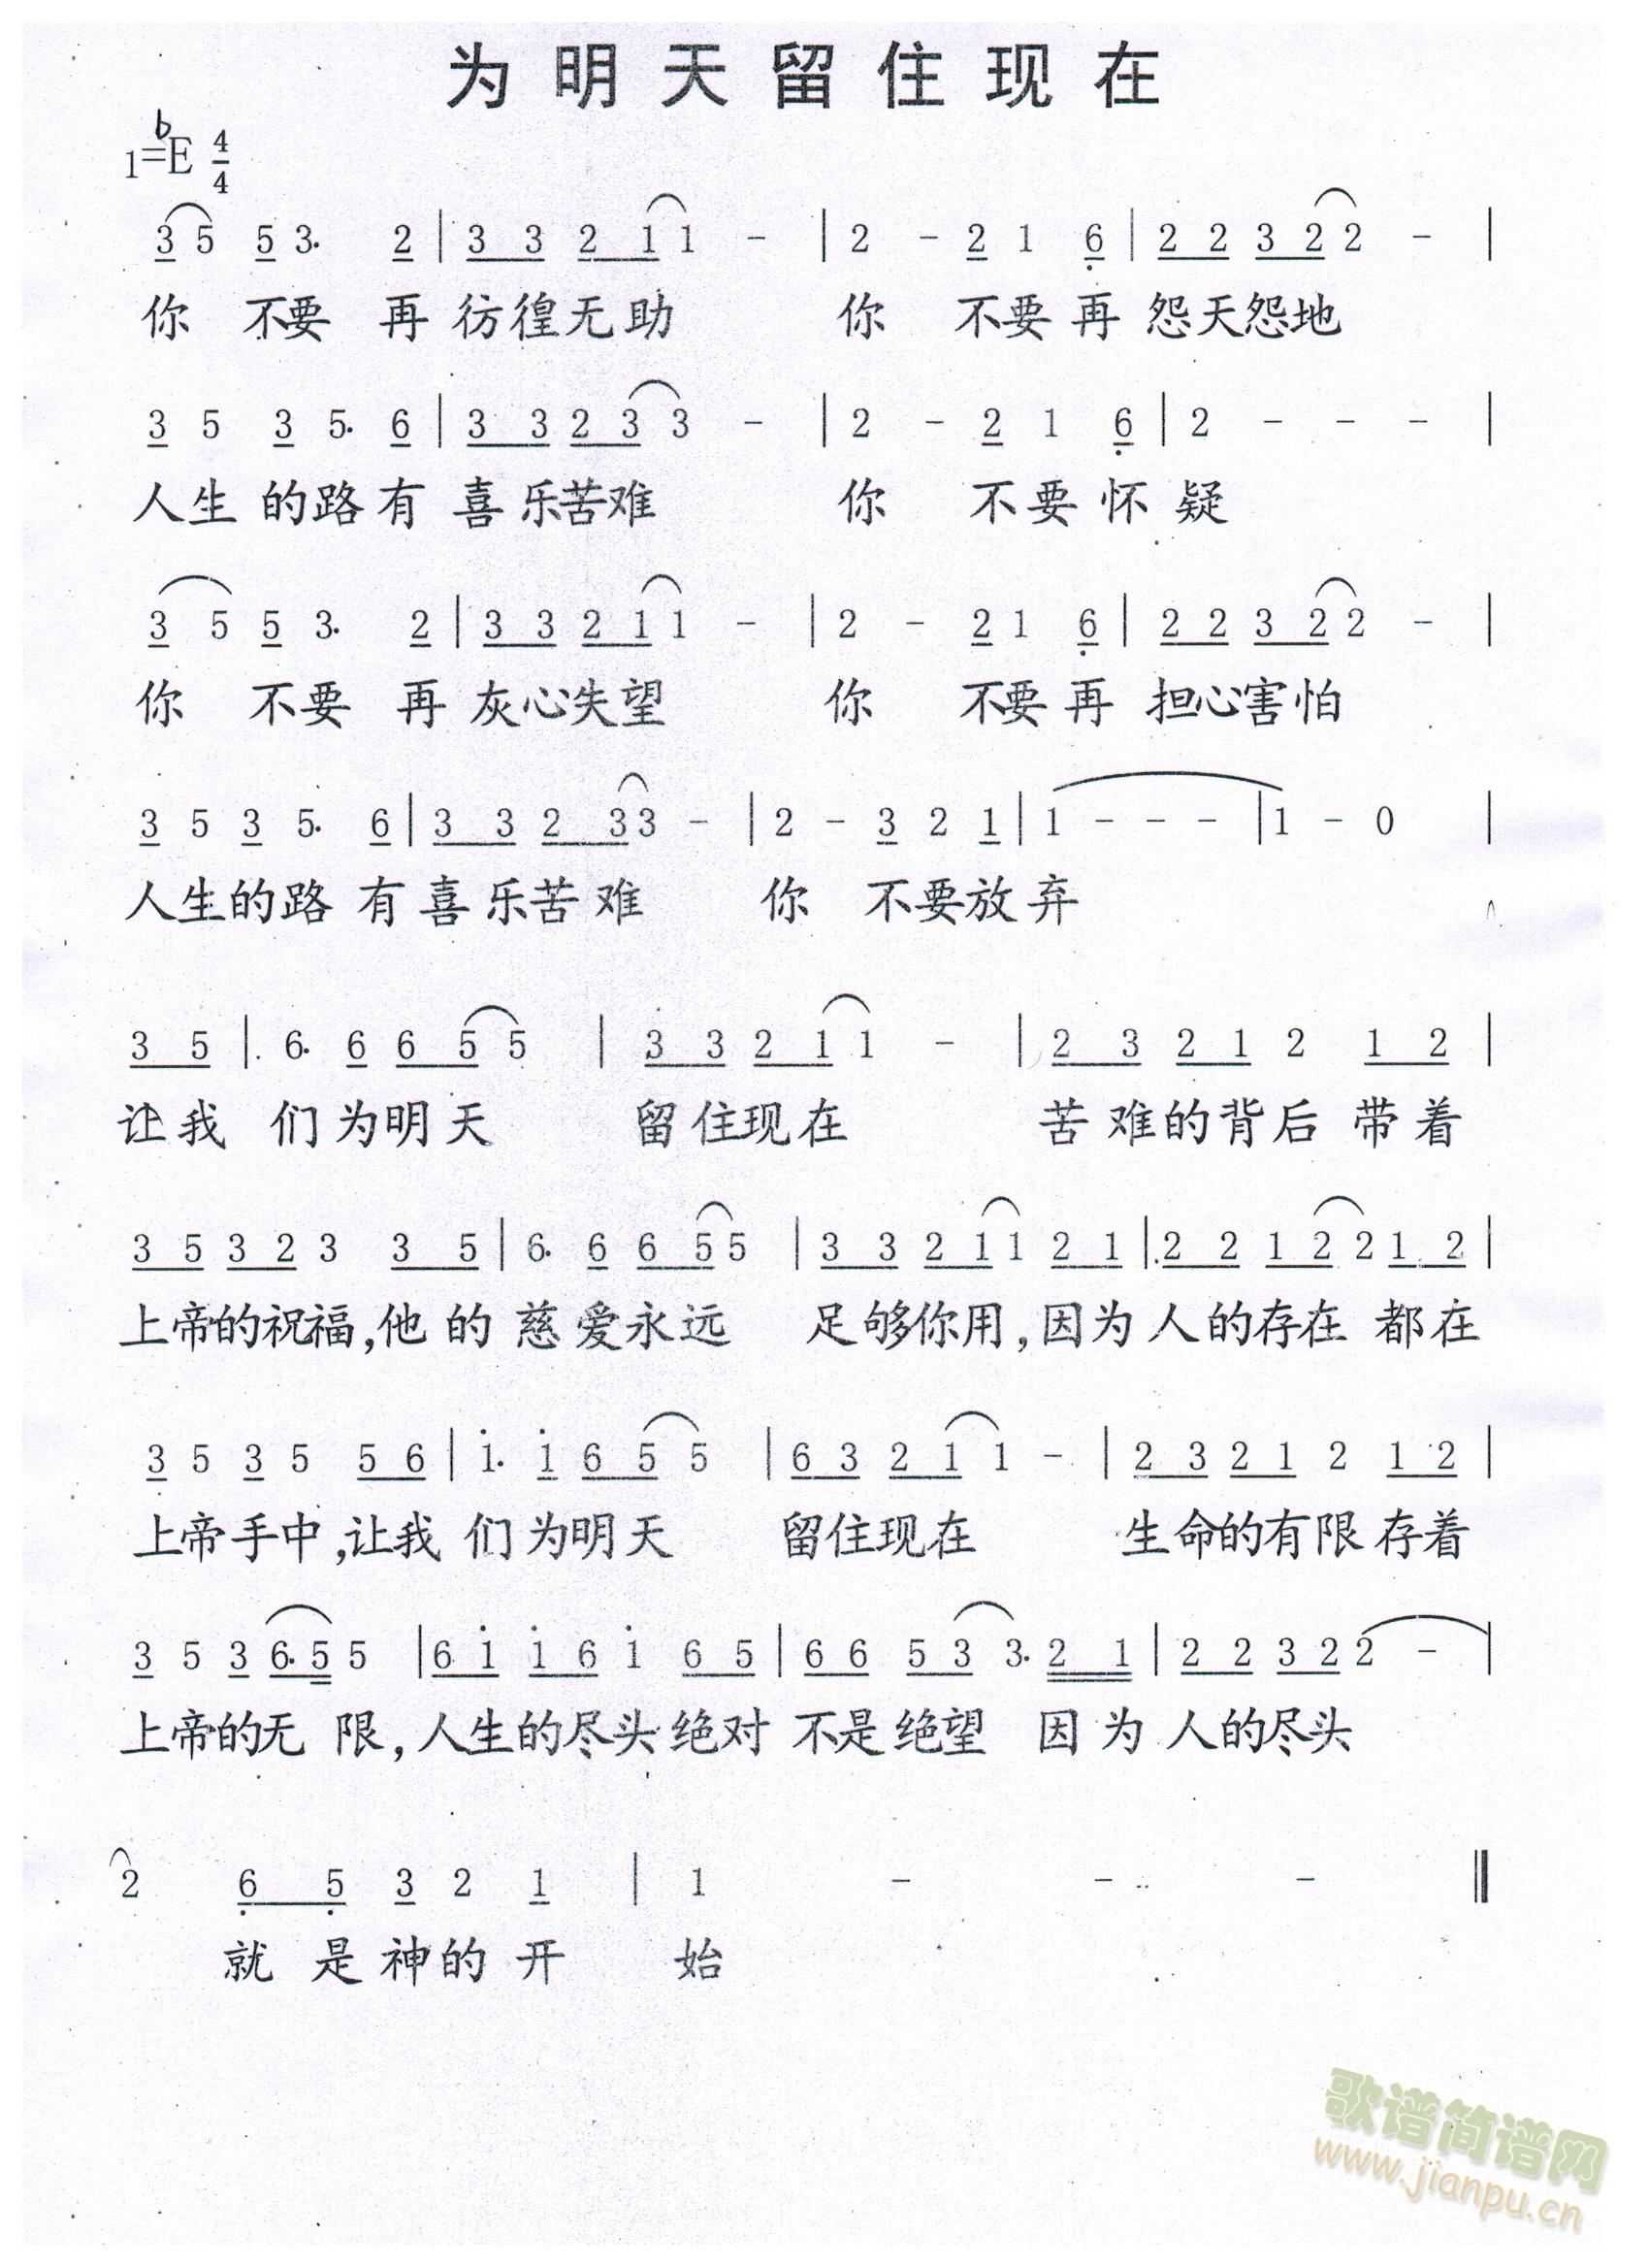 为明天留住现在
1=bE 4/4
3 5 5 3. 2 | 3 3 2 1 1 - | 2 - 2 1 6 | 2 2 3 2 2 - |
你 不要 再 彷徨无助 你 不要再 怨天怨地
3 5 3 5. 6 | 3 3 2 3 3 - | 2 - 2 1 6 | 2 - - - |
人生 的路有 喜乐苦难 你 不要怀疑
3 5 5 3. 2 | 3 3 2 1 1 - | 2 - 2 1 6 | 2 2 3 2 2 - |
你 不要 再 灰心失望 你 不要再 担心害怕
3 5 3 5. 6 | 3 3 2 3 3 - | 2 - 3 2 1 | 1 - - - | 1 - 0 |
人生的路 有喜乐苦难 你 不要放弃
3 5 | 6. 6 6 5 5 | 3 3 2 1 1 - | 2 3 2 1 2 1 2 |
让我 们为明天 留住现在 苦难的背后 带着
3 5 3 2 3 3 5 | 6. 6 6 5 5 | 3 3 2 1 1 2 1 | 2 2 1 2 2 1 2 |
上帝的祝福,他的 慈爱永远 足够你用,因为人的存在 都在
3 5 3 5 5 6 | 1. 1 6 5 5 | 6 3 2 1 1 - | 2 3 2 1 2 1 2 |
上帝手中,让我 们为明天 留住现在 生命的有限存着
3 5 3 6. 5 5 | 6 1 1 6 1 6 5 | 6 6 5 3 3. 2 1 | 2 2 3 2 2 - |
上帝的无 限,人生的尽头绝对 不是绝望 因为 人的尽头
2 6 5 3 2 1 | 1 - - -
就是神的开 始
歌谱简谱网
www.jianpu.cn